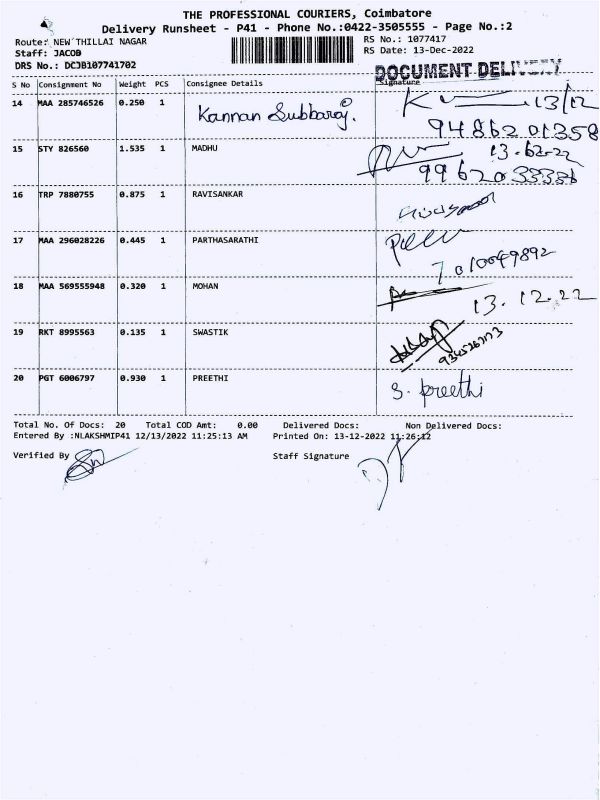 THE PROFESSIONAL COURIERS, Coimbatore
Delivery Runsheet - P41 - Phone No.:0422-3505555 - Page No.:2
Route: NEW THILLAI NAGAR
RS No.: 1077417
Staff: JACOB
RS Date: 13-Dec-2022
DRS No.: DCJB107741702
DOCUMENT DELIVERY
S No Consignment No Weight PCS Consignee Details Signature
14 MAA 285746526 0.250 1 Kannan Subbaraj. 13/12
94862 01358
15 STY 826560 1.535 1 MADHU
16 TRP 7880755 0.875 1 RAVISANKAR
17 MAA 296028226 0.445 1 PARTHASARATHI
7010049892
18 MAA 569555948 0.320 1 MOHAN
13.12.22
19 RKT 8995563 0.135 1 SWASTIK
20 PGT 6006797 0.930 1 PREETHI S. preethi
Total No. Of Docs: 20 Total COD Amt: 0.00 Delivered Docs: Non Delivered Docs:
Entered By :NLAKSHMIP41 12/13/2022 11:25:13 AM Printed On: 13-12-2022 11:26:12
Verified By Staff Signature